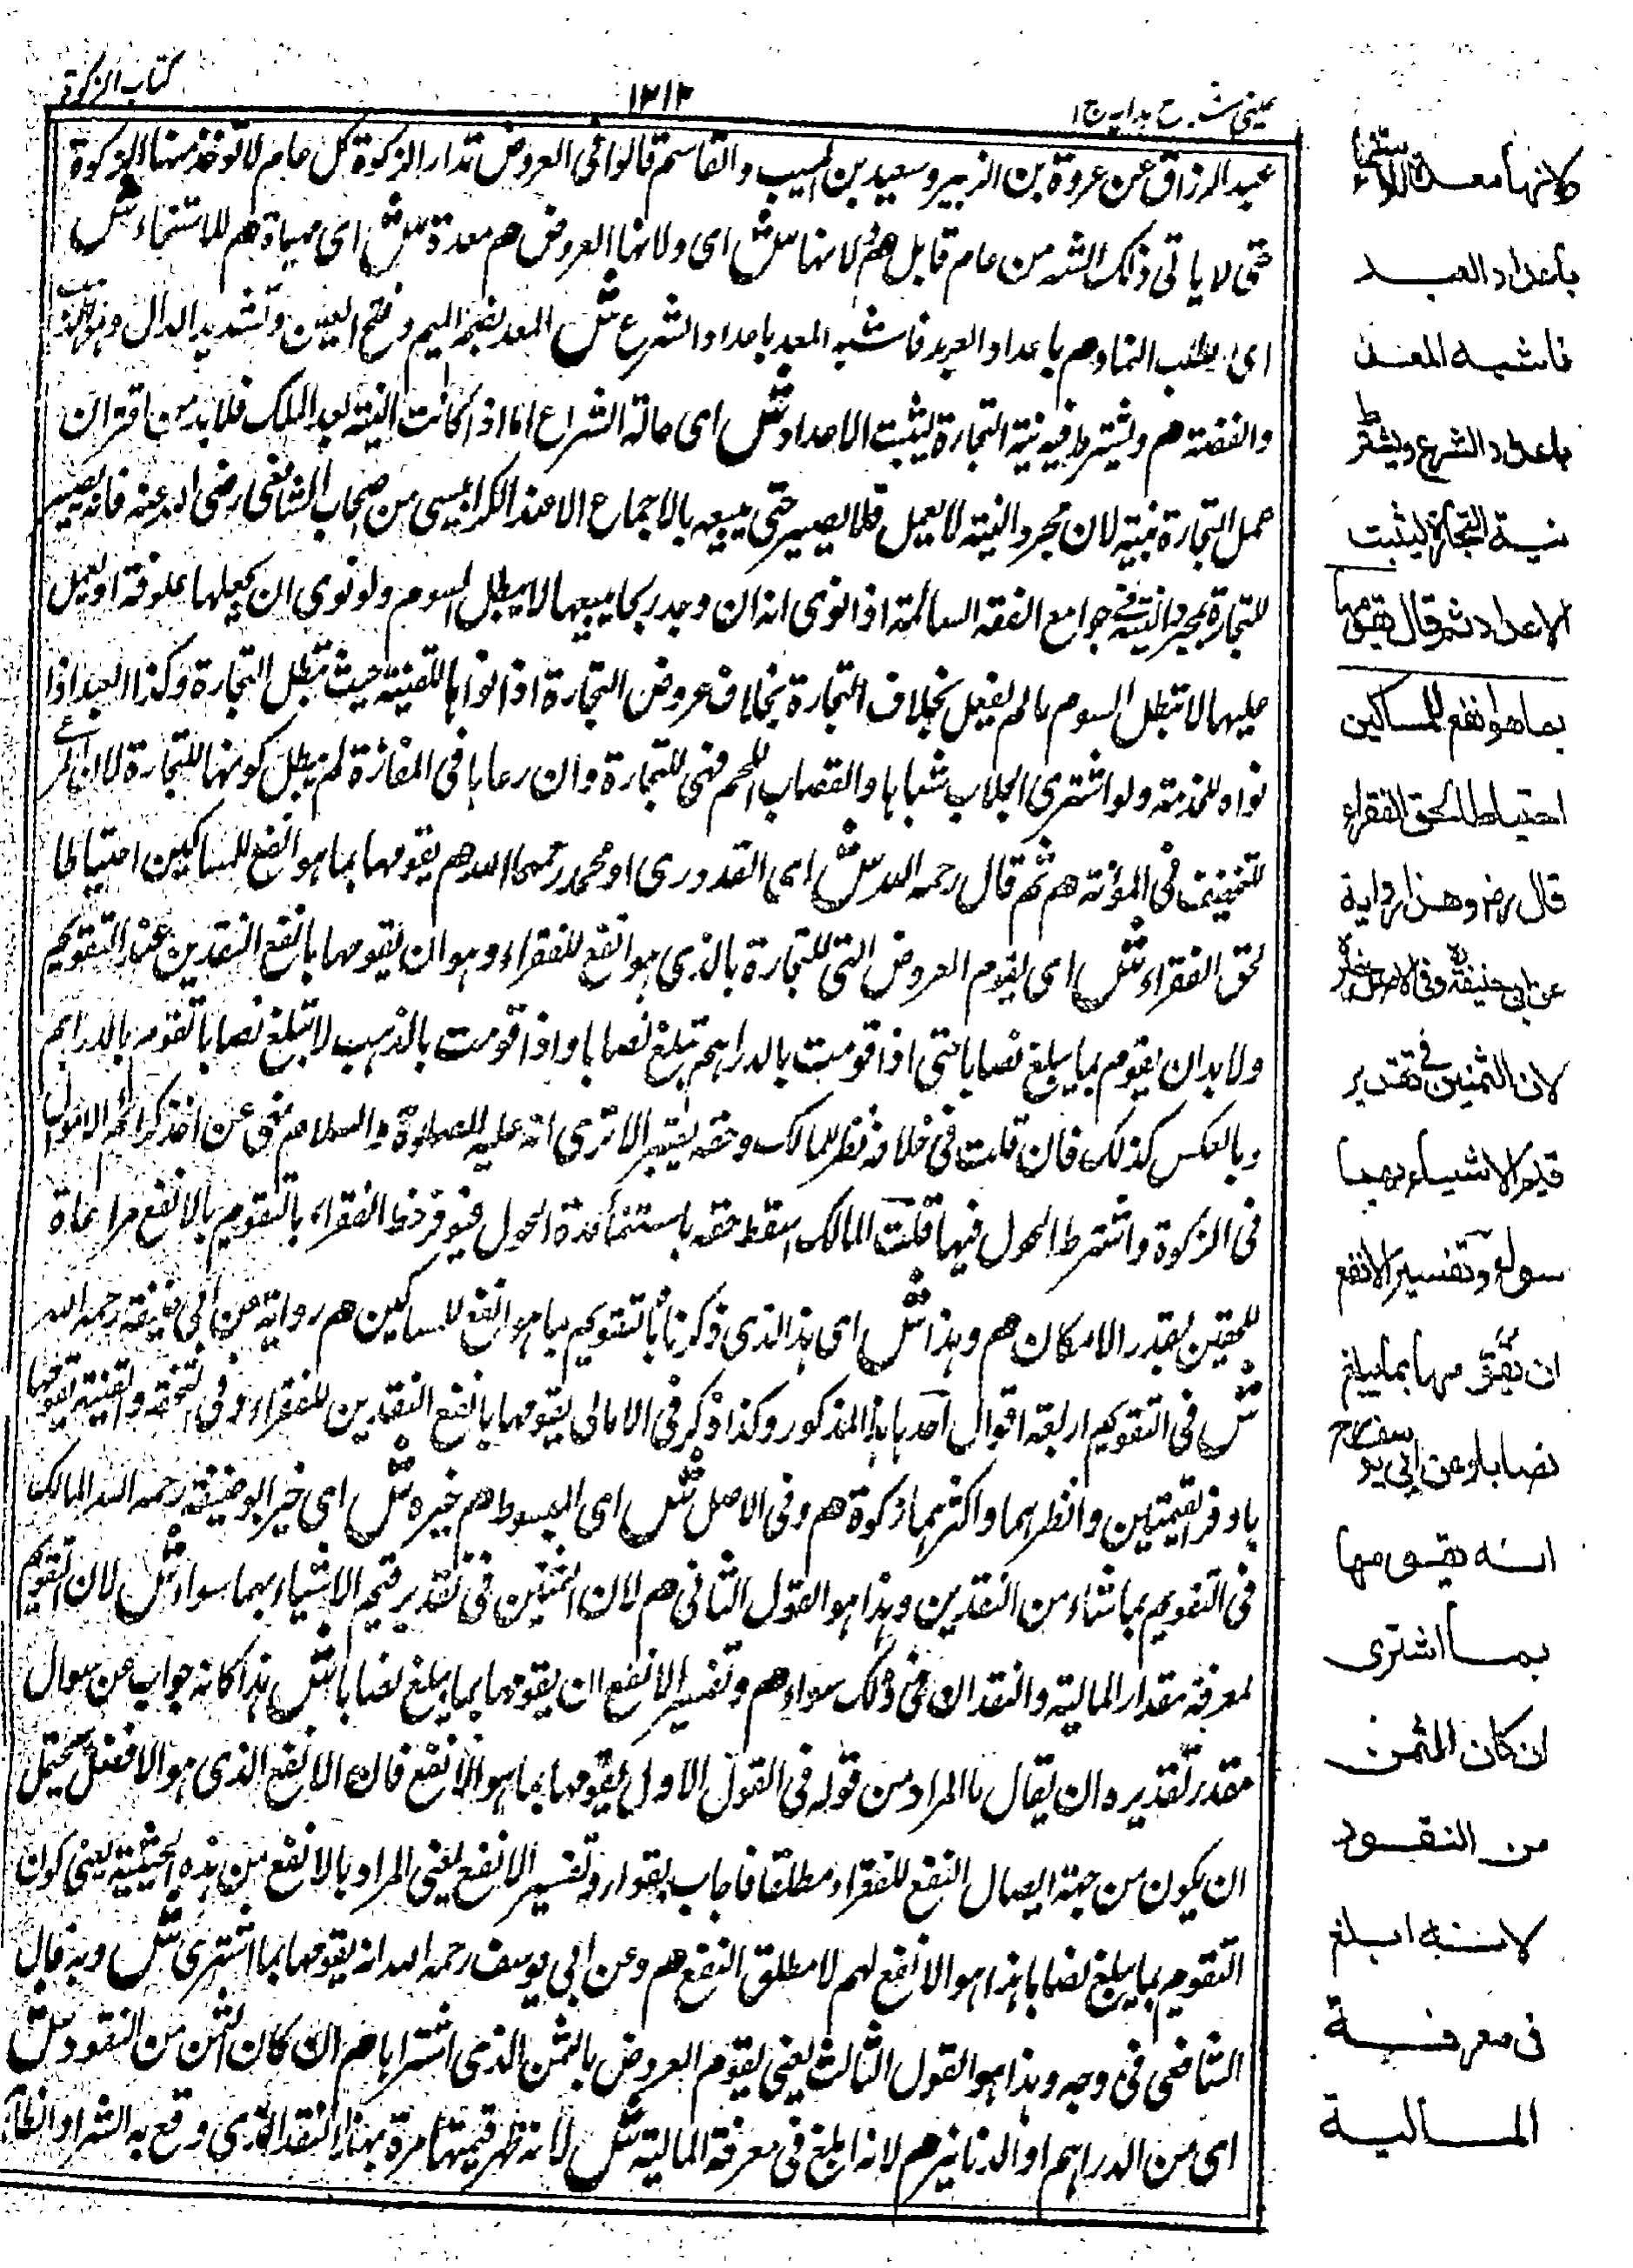 عینی شرح ہدایہ ج ۱
۱۲۱۳
کتاب الزکوة
عبد الرزاق عن عروة بن الزبیر وسعید بن المسیب والقاسم قالوا فی العروض تدار الزکوة کل عام لا تؤخذ منها الزکوة
حتی لا یاتی ذلک الشهر من عام قابل هم ولانها ش ای ولانها العروض هم معدة ش ای مهیاة هم للاستنماء ش
ای لطلب النماء هم باعداد العبد فاشبه المعد باعداد الشرع ش المعد بضم المیم وفتح العین وتشدید الدال وهو الذهب
والفضة هم ویشترط فیه نیة التجارة لیثبت الاعداد ش ای حالة الشراء اما اذا کانت النیة بعد الملک فلا بد من اقتران
عمل التجارة بنیته لان مجرد النیة لا یعمل فلا یصیر حتی یبیعه بالاجماع الا عند الکرابیسی من اصحاب الشافعی رضی الله عنه فانه یصیر
للتجارة بمجرد النیة فی جوامع الفقه السائمة اذا نوی انه ان وجد ربحا یبیعها لا یبطل السوم ولو نوی ان یجعلها علوفة او یعمل
علیها لا تبطل السوم ما لم یفعل بخلاف التجارة بخلاف عروض التجارة اذا نواها للقنیة حیث تبطل التجارة وکذا العبد اذا
نواه للخدمة ولو اشتری الجلاب شیاها والقصاب اللحم فهی للتجارة وان رعاها فی المفازة لم یبطل کونها للتجارة لان الرعی
للتخفیف فی المؤنة هم ثم قال رحمه الله ش ای القدوری او محمد رحمهما الله هم یقومها بما هو انفع للمساکین احتیاطا
لحق الفقراء ش ای یقوم العروض التی للتجارة بالذی هو انفع للفقراء وهو ان یقومها بانفع النقدین عند التقویم
ولا بد ان یقوم بما یبلغ نصابا حتی اذا قومت بالدراهم تبلغ نصابا واذا قومت بالذهب لا تبلغ نصابا تقوم بالدراهم
وبالعکس کذلک فان قلت فی خلافه نظر للمالک وحقه یعتبر الا تری انه علیه الصلوة والسلام نهی عن اخذ کرائم الاموال
فی الزکوة واشترط الحول فیها قلت المالک اسقط حقه باستنمائه مدة الحول فیوفر حظ الفقراء بالتقویم بالانفع مراعاة
للحقین بقدر الامکان هم وهذا ش ای هذا الذی ذکرنا بالتقویم بما هو انفع للمساکین هم روایة عن ابی حنیفة رحمه الله
ش فی التقویم اربعة اقوال احدها هذا المذکور وکذا ذکر فی الامالی یقومها بانفع النقدین للفقراء وفی التحفة والقنیة یقومها
باوفر القیمتین وانظرهما واکثرهما زکوة هم وفی الاصل ش ای المبسوط هم خیره ش ای خیر ابو حنیفة رحمه الله المالک
فی التقویم بما شاء من النقدین وهذا هو القول الثانی هم لان الثمنین فی تقدیر قیم الاشیاء بهما سواء ش لان التقویم
لمعرفة مقدار المالیة والنقدان فی ذلک سواء هم وتفسیر الانفع ان یقومها بما یبلغ نصابا ش هذا کانه جواب عن سوال
مقدر تقدیره ان یقال ما المراد من قوله فی القول الاول یقومها بما هو الانفع فان الانفع الذی هو الافضل یحتمل
ان یکون من جهة ایصال النفع للفقراء مطلقا فاجاب بقوله وتفسیر الانفع یعنی المراد بالانفع من هذه الحیثیة یعنی کون
التقویم بما یبلغ نصابا هذا هو الانفع لهم لا مطلق النفع هم وعن ابی یوسف رحمه الله انه یقومها بما اشتری ش وبه قال
الشافعی فی وجه وهذا هو القول الثالث یعنی یقوم العروض بالثمن الذی اشتراها هم ان کان الثمن من النقود ش
ای من الدراهم او الدنانیر هم لانه ابلغ فی معرفة المالیة ش لانه ظهر قیمتها مرة بهذا النقد الذی وقع به الشراء والظاهر
ولانها معدة للاستنماء
باعداد العبد
فاشبه المعد
باعداد الشرع ویشترط
نیة التجارة لیثبت
الاعداد ثم قال یقومها
بما هو انفع للمساکین
احتیاطا لحق الفقراء
قال رض وهذا روایة
عن ابی حنیفة رح وفی الاصل خیره
لان الثمنین فی تقدیر
قیم الاشیاء بهما
سواء وتفسیر الانفع
ان یقومها بما یبلغ
نصابا وعن ابی یوسف رح
انه یقومها
بما اشتری
ان کان الثمن
من النقود
لانه ابلغ
فی معرفة
المالیة